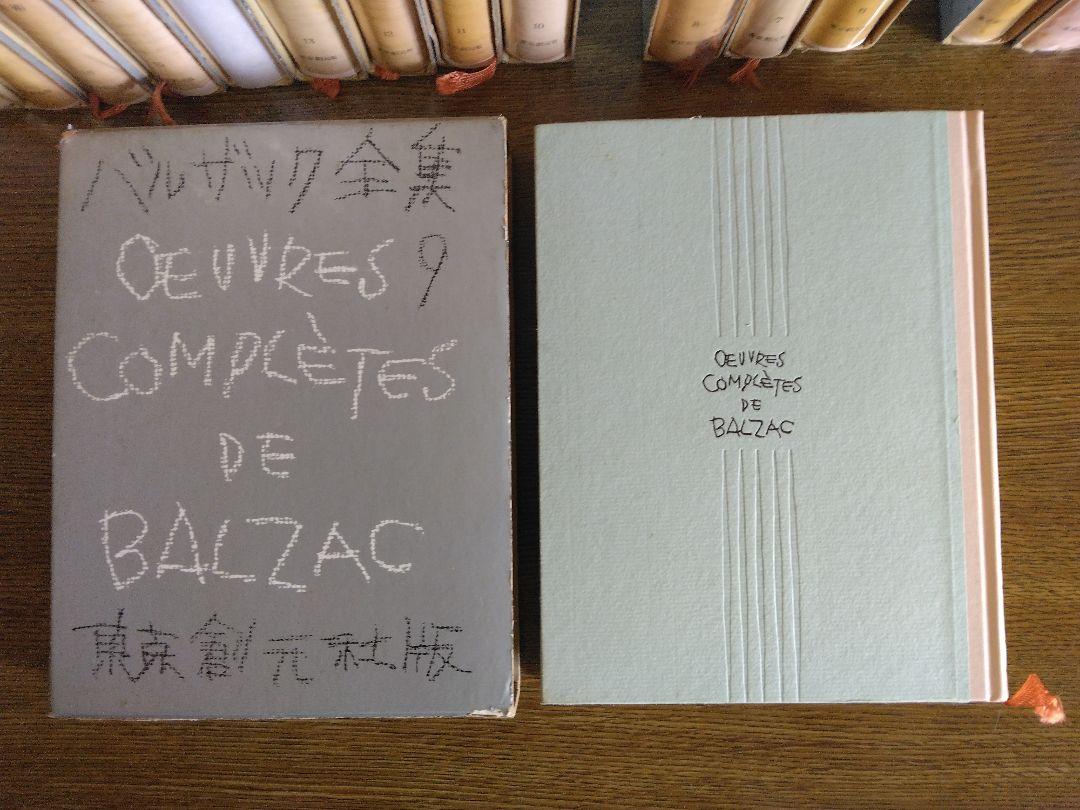 13
12
11
10
8
7
6
バルザック全集
OEUVRES 9
COMPLÈTES
DE
BALZAC
東京創元社版
OEUVRES
COMPLÈTES
DE
BALZAC